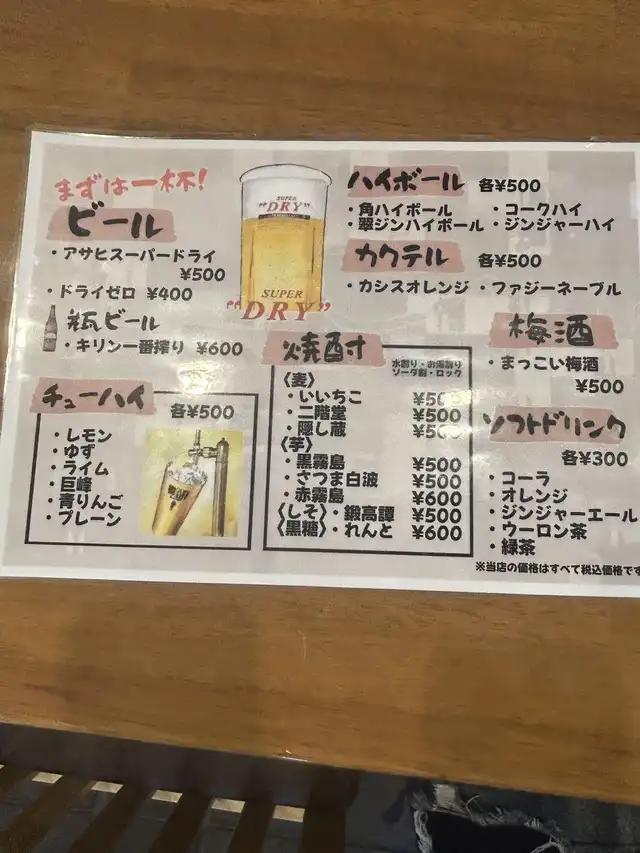 まずは一杯!
ビール
・アサヒスーパードライ
¥500
・ドライゼロ ¥400
瓶ビール
・キリン一番搾り ¥600
チューハイ
各¥500
・レモン
・ゆず
・ライム
・巨峰
・青りんご
・プレーン
SUPER
"DRY"
SUPER
"DRY"
焼酎
水割り・お湯割り
ソーダ割・ロック
〈麦〉
・いいちこ ¥500
・二階堂 ¥500
・隠し蔵 ¥500
〈芋〉
・黒霧島 ¥500
・さつま白波 ¥500
・赤霧島 ¥600
〈しそ〉・鍛高譚 ¥500
〈黒糖〉・れんと ¥600
ハイボール 各¥500
・角ハイボール ・コークハイ
・翠ジンハイボール ・ジンジャーハイ
カクテル 各¥500
・カシスオレンジ ・ファジーネーブル
梅酒
・まっこい梅酒
¥500
ソフトドリンク
各¥300
・コーラ
・オレンジ
・ジンジャーエール
・ウーロン茶
・緑茶
※当店の価格はすべて税込価格です